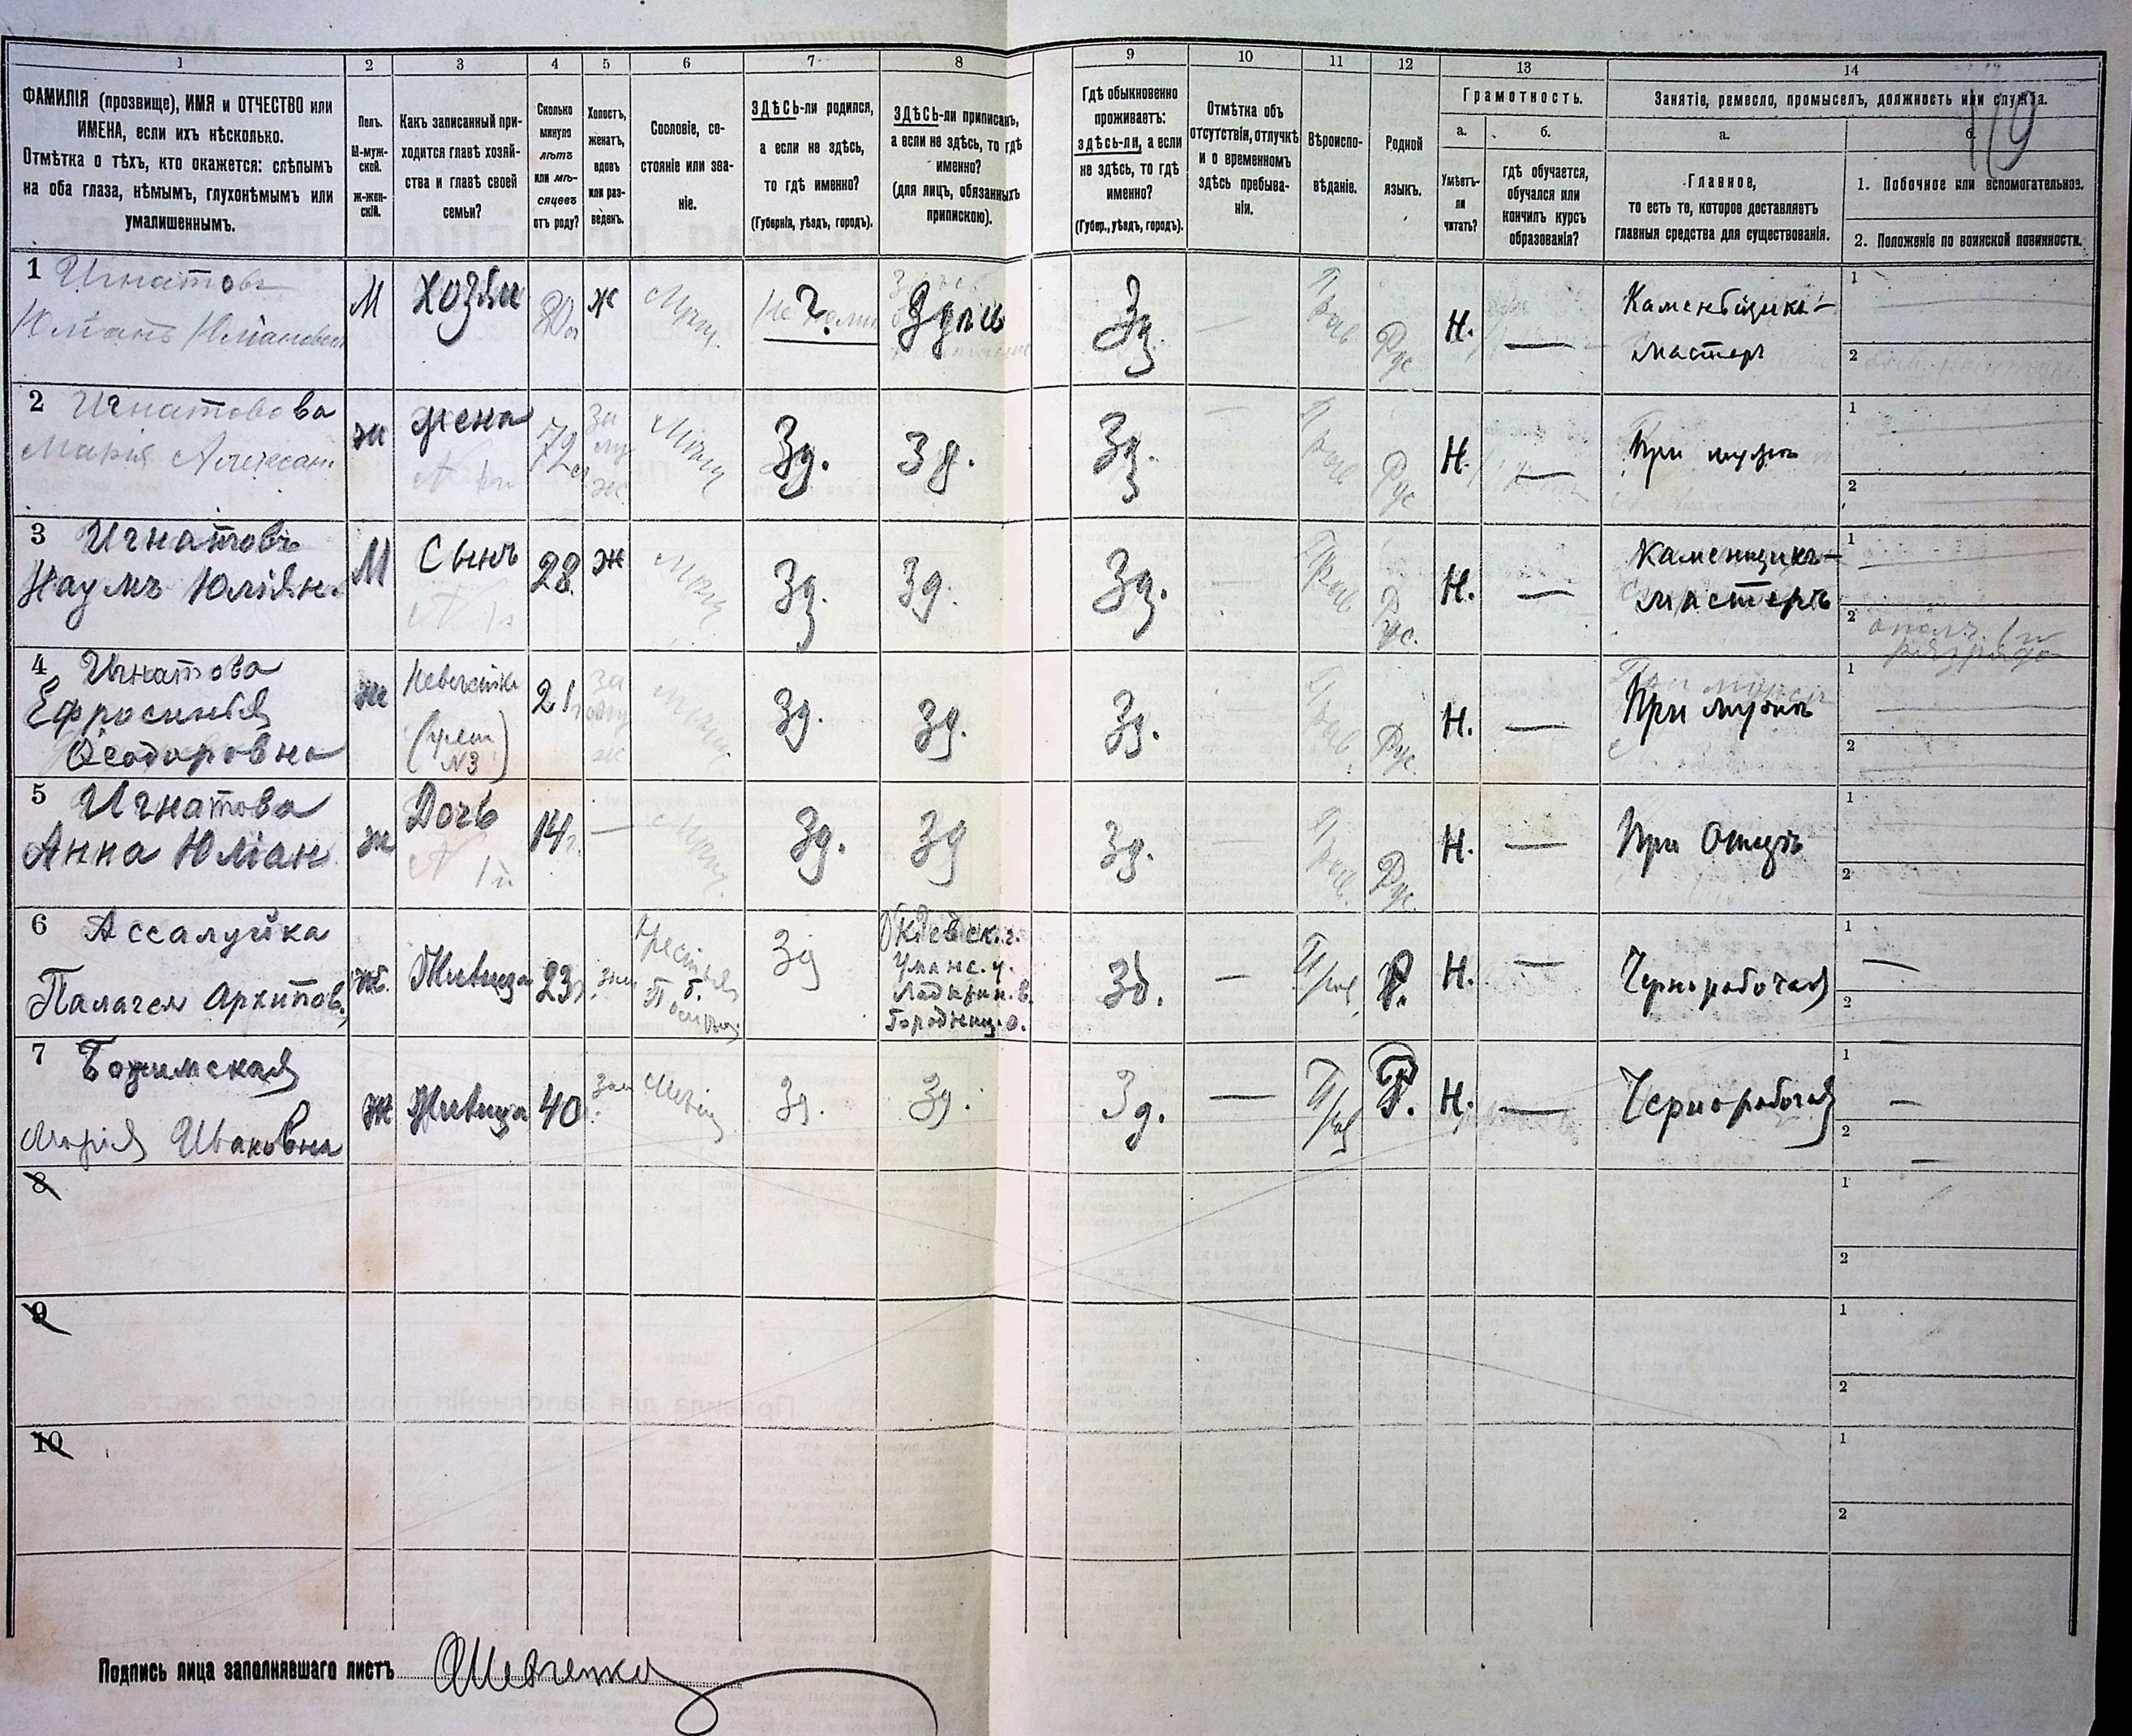 119
1 2 3 4 5 6 7 8 9 10 11 12 13 14
ФАМИЛІЯ (прозвище), ИМЯ и ОТЧЕСТВО или
ИМЕНА, если ихъ нѣсколько.
Отмѣтка о тѣхъ, кто окажется: слѣпымъ
на оба глаза, нѣмымъ, глухонѣмымъ или
умалишеннымъ.
Полъ.
М-муж-
ской.
ж-жен-
скій.
Какъ записанный при-
ходится главѣ хозяй-
ства и главѣ своей
семьи?
Сколько
минуло
лѣтъ
или мѣ-
сяцевъ
отъ роду?
Холостъ,
женатъ,
вдовъ
или раз-
веденъ.
Сословіе, со-
стояніе или зва-
ніе.
ЗДѢСЬ-ли родился,
а если не здѣсь,
то гдѣ именно?
(Губернія, уѣздъ, городъ).
ЗДѢСЬ-ли приписанъ,
а если не здѣсь, то гдѣ
именно?
(для лицъ, обязанныхъ
припискою).
Гдѣ обыкновенно
проживаетъ:
здѣсь-ли, а если
не здѣсь, то гдѣ
именно?
(Губер., уѣздъ, городъ).
Отмѣтка объ
отсутствіи, отлучкѣ
и о временномъ
здѣсь пребыва-
ніи.
Вѣроиспо-
вѣданіе.
Родной
языкъ.
Грамотность.
а.
Умѣетъ-
ли
читать?
б.
гдѣ обучается,
обучался или
кончилъ курсъ
образованія?
Занятіе, ремесло, промыселъ, должность или служба.
а.
Главное,
то есть то, которое доставляетъ
главныя средства для существованія.
б.
1. Побочное или вспомогательное.
2. Положеніе по воинской повинности.
1 Игнатовъ
М Хозяи ж Мѣщ. ? Здѣсь Зд. — Рус Н. —
Каменьщикъ-
мастеръ
1
2
2 Игнатовова
Марія Александ
ж жена 72 За муж Мѣщ Зд. Зд. Зд. — Рус Н. — При мужѣ
1
2
3 Игнатовъ
Наумъ Юліян.
М Сынъ 28 ж Мѣщ Зд. Зд. Зд. — Рус. Н. —
Каменщикъ-
мастеръ
1
2 ополч. 1 разряда
4 Игнатова
Ефросинія
Ѳеодоровна
ж Невѣстка 21 Зд. Зд. Зд. Рус. Н. — При мужѣ
1
2
5 Игнатова
Анна Юліан
ж Дочь 14 — Мѣщ. Зд. Зд Зд. — Рус. Н. — При Отцѣ
1
2
6 Ассалуйка
Палагея Архипов.
ж. Жилица 23 Зд
Кіевск. г.
Уманс. у.
Ладыжин. в.
Городниц. о.
Зд. — Р. Н. — Чернорабочая
1 —
2
7 Божимская
Марія Ивановна
ж Жилица 40 зам Мѣщ Зд. Зд. Зд. — Р. Н. — Чернорабочая
1 —
2 —
8
1
2
9
1
2
10
1
2
Подпись лица заполнявшаго листъ